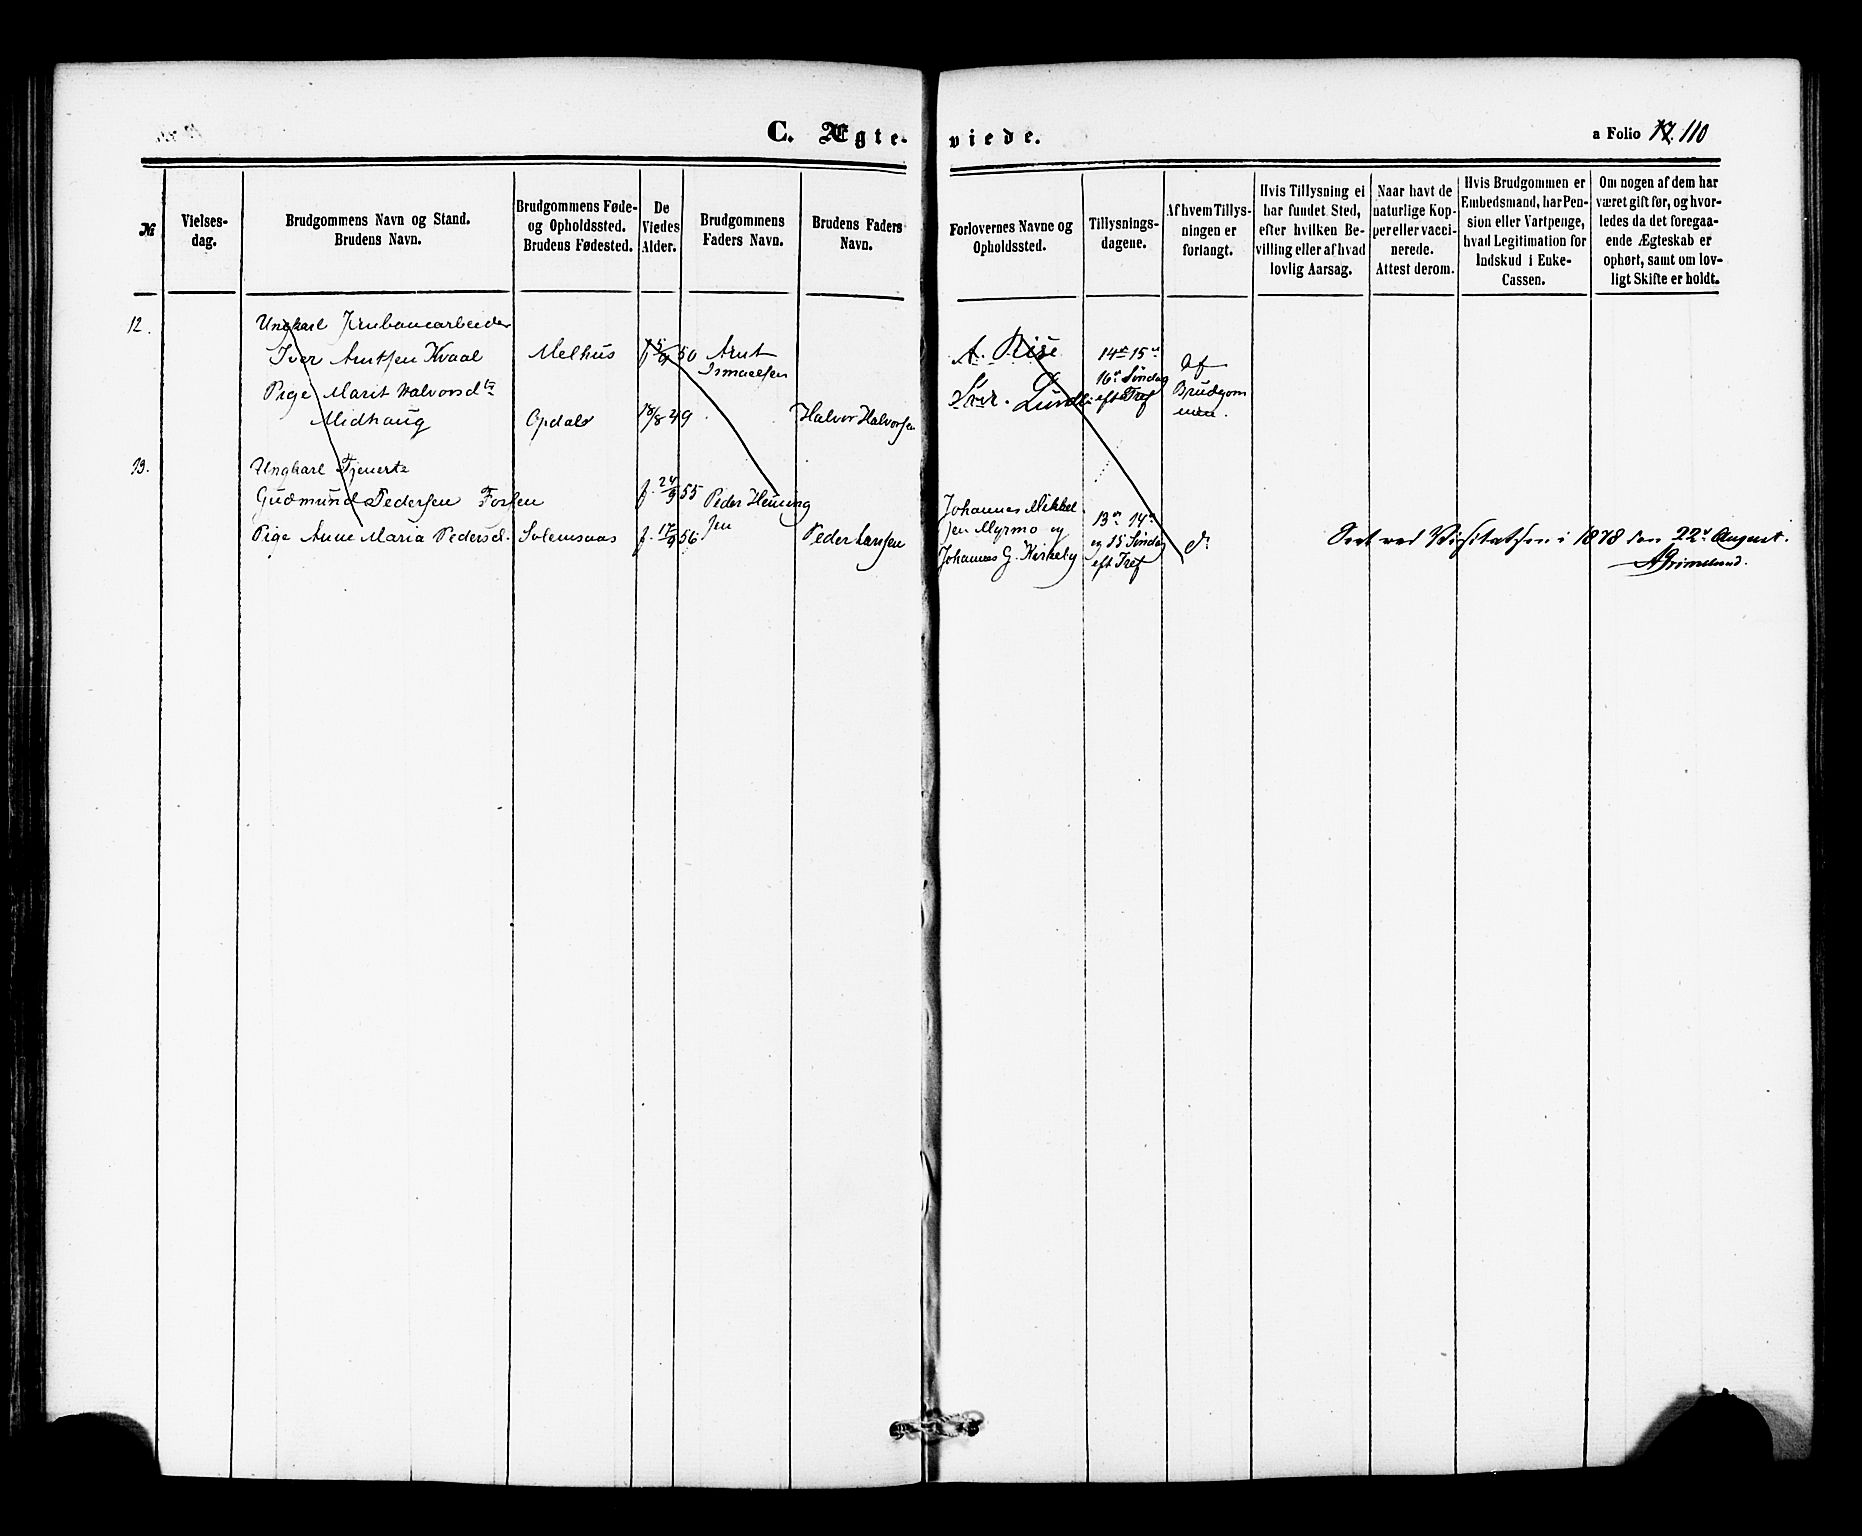 C. Ægte-viede.
a Folio 17. 110
№
Vielses-
dag.
Brudgommens Navn og Stand.
Brudens Navn.
Brudgommens Føde-
og Opholdssted.
Brudens Fødested.
De
Viedes
Alder.
Brudgommens
Faders Navn.
Brudens Faders
Navn.
Forlovernes Navne og
Opholdssted.
Tillysnings-
dagene.
Af hvem Tillys-
ningen er
forlangt.
Hvis Tillysning ei
har fundet Sted,
efter hvilken Be-
villing eller af hvad
lovlig Aarsag.
Naar havt de
naturlige Kop-
per eller vacci-
nerede.
Attest derom.
Hvis Brudgommen er
Embedsmand, har Pen-
sion eller Vartpenge,
hvad Legitimation for
Indskud i Enke-
Cassen.
Om nogen af dem har
været gift før, og hvor-
ledes da det foregaa-
ende Ægteskab er
ophørt, samt om lov-
ligt Skifte er holdt.
12.
Ungkarl Jernbanearbeider
Iver Arntsen Kvaal
Pige Marit Halvorsdtr
Midhaug
Melhus
Opdal
50
18/8 49
Arnt
Ismaelsen
Halvor Halvorsen
A. Rise
14de 15de
16de Søndag
eft Tref
Af
Brudgom
men.
13.
Ungkarl Tjenere
Gudmund Pedersen Forsen
Pige Anne Maria Pedersd.
Solemsaas
f. 24/9 55
f. 17/9 56
Peder Henning
sen
Peder Larsen
Johannes Mikkel
sen Myrmo og
Johannes G. Kirkeby
13de 14de
og 15 Søndag
eft Tref
do
Seet ved Visitatsen i 1878 den 22de August.
AGrimelund.